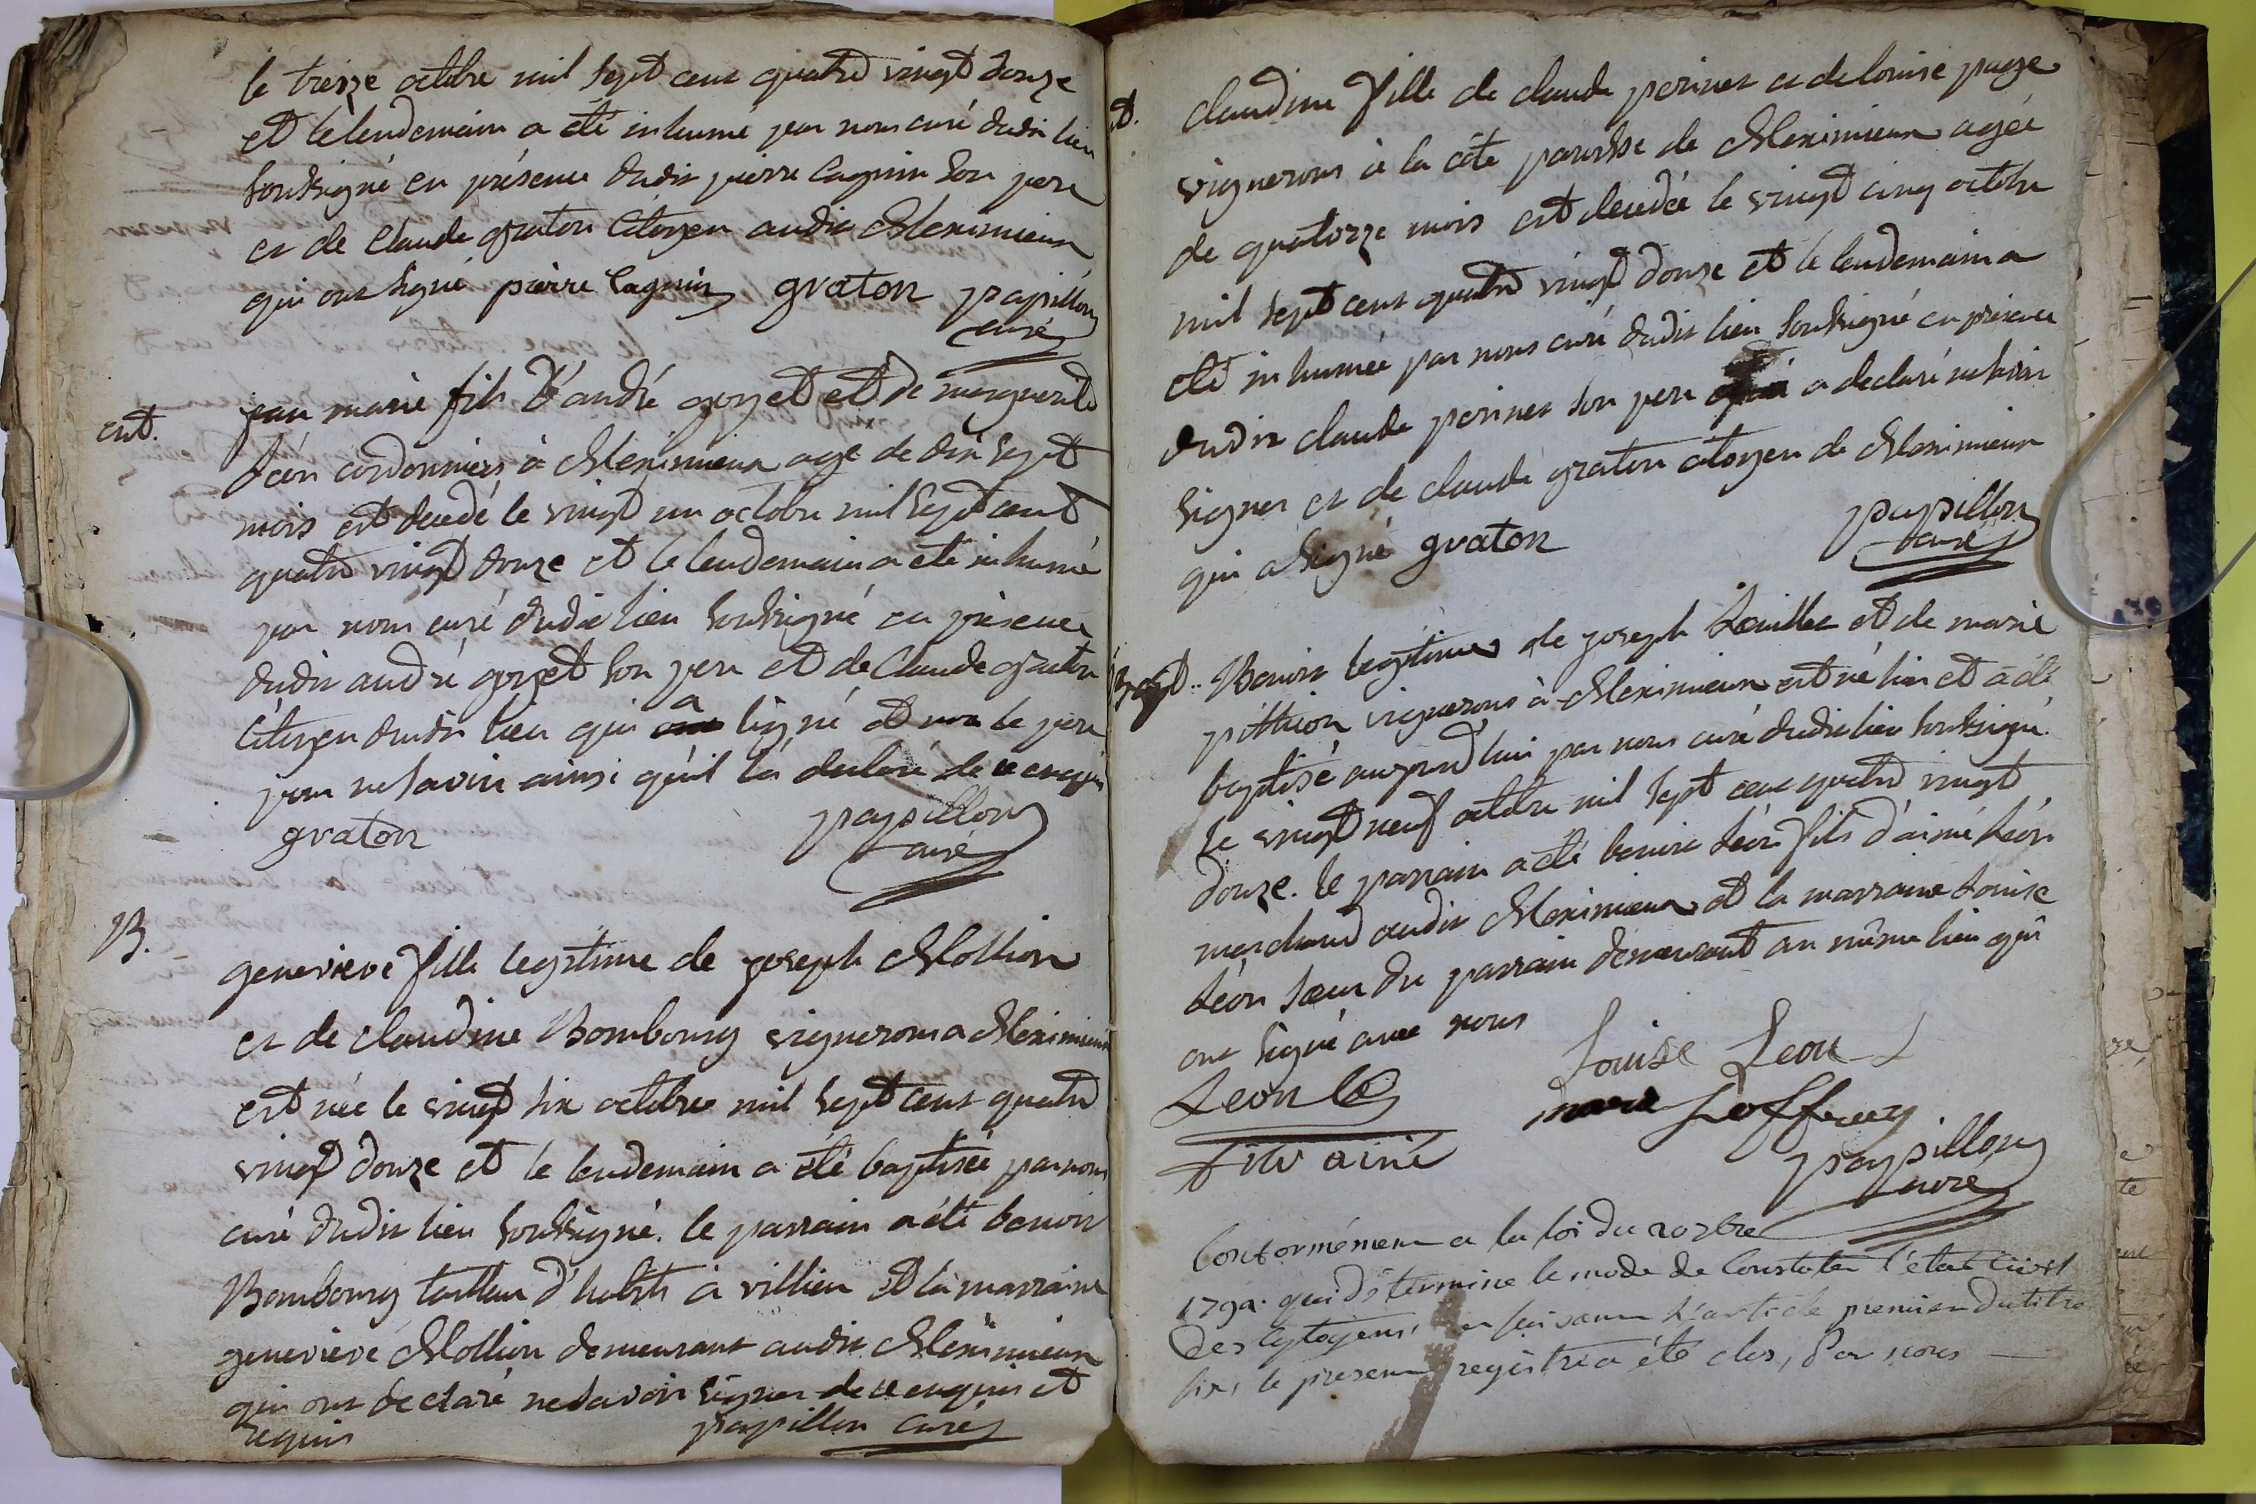 le treize octobre mil sept cent quatre vingt douze
et le lendemain a été inhumé par nous curé dudit lieu
soussigné en présence dudit pierre Cagnin son pere
et de Claude graton Citoyen audit Meximieux
qui ont signé pierre Cagnin graton papillon
curé
ent.
jean marie fils d'andré goyet et de marguerite
Léon cordonniers à Meximieux agé de dix sept
mois est decedé le vingt un octobre mil sept cent
quatre vingt douze et le lendemain a été inhumé
par nous curé dudit lieu soussigné en présence
dudit andré goyet son pere et de Claude graton
Citoyen dudit lieu qui a signé et non le pere
pour ne savoir ainsi qu'il l'a declaré de ce enquis
graton papillon
curé
B.
genevieve fille legitime de joseph Mollion
et de claudine Bombourg vignerons a Meximieux
est née le vingt six octobre mil sept cent quatre
vingt douze et le lendemain a été baptisée par nous
curé dudit lieu soussigné. le parrain a été benoit
Bombourg tailleur d'habits à villieu et la marraine
genevieve Mollion demeurant audit Meximieux
qui ont declaré ne savoir signer de ce enquis et
requis papillon curé
claudine fille de claude perinet et de louise page
vignerons à la côte paroisse de Meximieux agée
de quatorze mois est decedée le vingt cinq octobre
mil sept cent quatre vingt douze et le lendemain a
été inhumée par nous curé dudit lieu soussigné en présence
dudit claude perinet son pere qui a declaré ne savoir
signer et de claude graton citoyen de Meximieux
qui a signé graton papillon
curé
Bapt.. Benoit legitime de joseph et de marie
pithion vignerons à Meximieux est né hier et a été
baptisé aujourd'hui par nous curé dudit lieu soussigné
le vingt neuf octobre mil sept cent quatre vingt
douze. le parrain a été benoit Léon fils d'aimé Léon
marchand audit Meximieux et la marraine Louise
Léon soeur du parrain demeurant au même lieu qui
ont signé avec nous
Louise Leon
Leon
marie Joffray
fils ainé
papillon
curé
Conformément a la loi du 20 7bre
1792. qui détermine le mode de Constater l'état Civil
des Cytoyens, en suivant l'article premier du titre
six, le present registre a été clos, Par nous